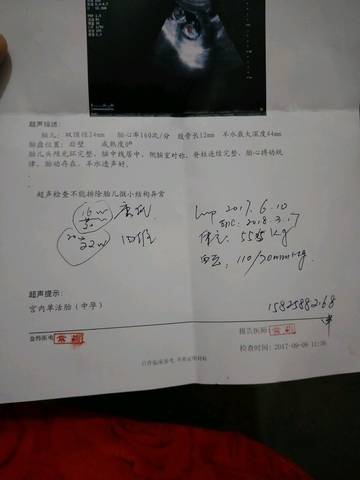 超声描述:
胎儿: 双顶径24mm 胎心率160次/分 股骨长12mm 羊水最大深度44mm
胎盘位置: 后壁 成熟度0°
胎儿头颅光环完整, 脑中线居中, 侧脑室对称, 脊柱连续完整, 胎心搏动规
律, 胎动存在, 羊水透声好。
超声检查不能排除胎儿微小结构异常
16w 唐氏
20
22w 四维
Lmp 2017.6.10
EDC 2018.3.17
体重: 55.5kg
血压: 110/70mmHg
超声提示:
宫内单活胎(中孕)
报告医师
检查时间:2017-09-09 11:36